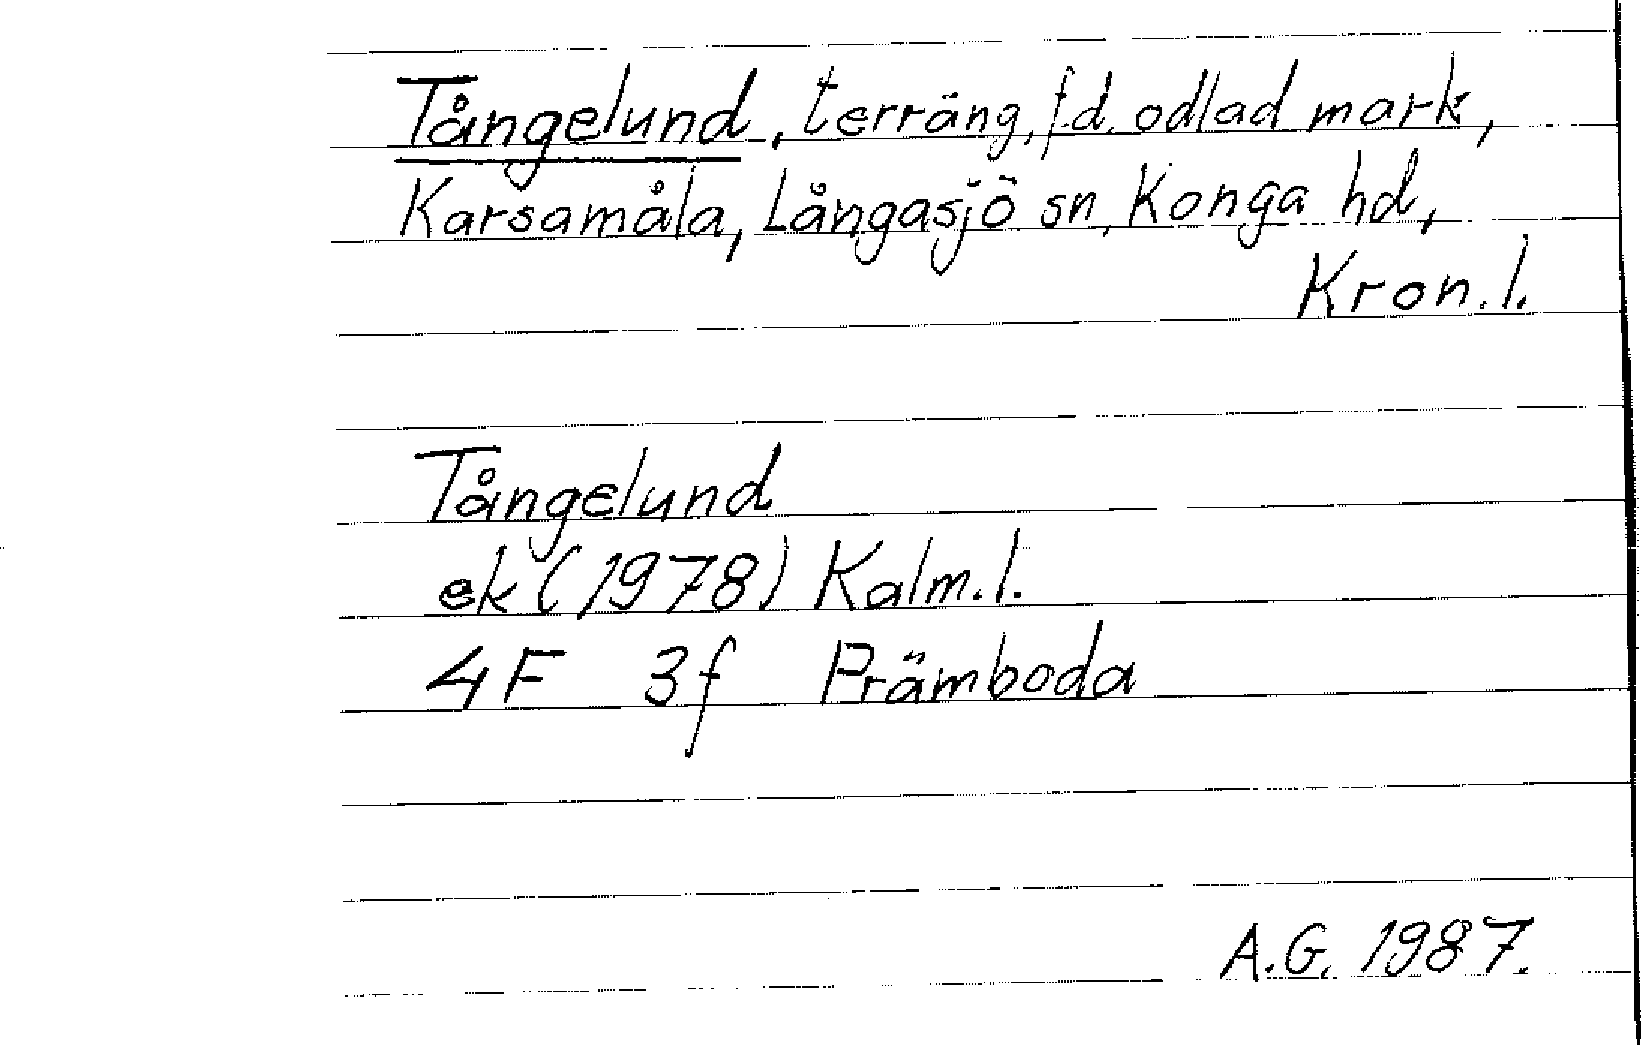 Tångelund, terräng, f.d. odlad mark,
Karsamåla, Långasjö sn, Konga hd,
Kron.l.
Tångelund
ek (1978) Kalm.l.
4F 3f Prämboda
A.G. 1987.